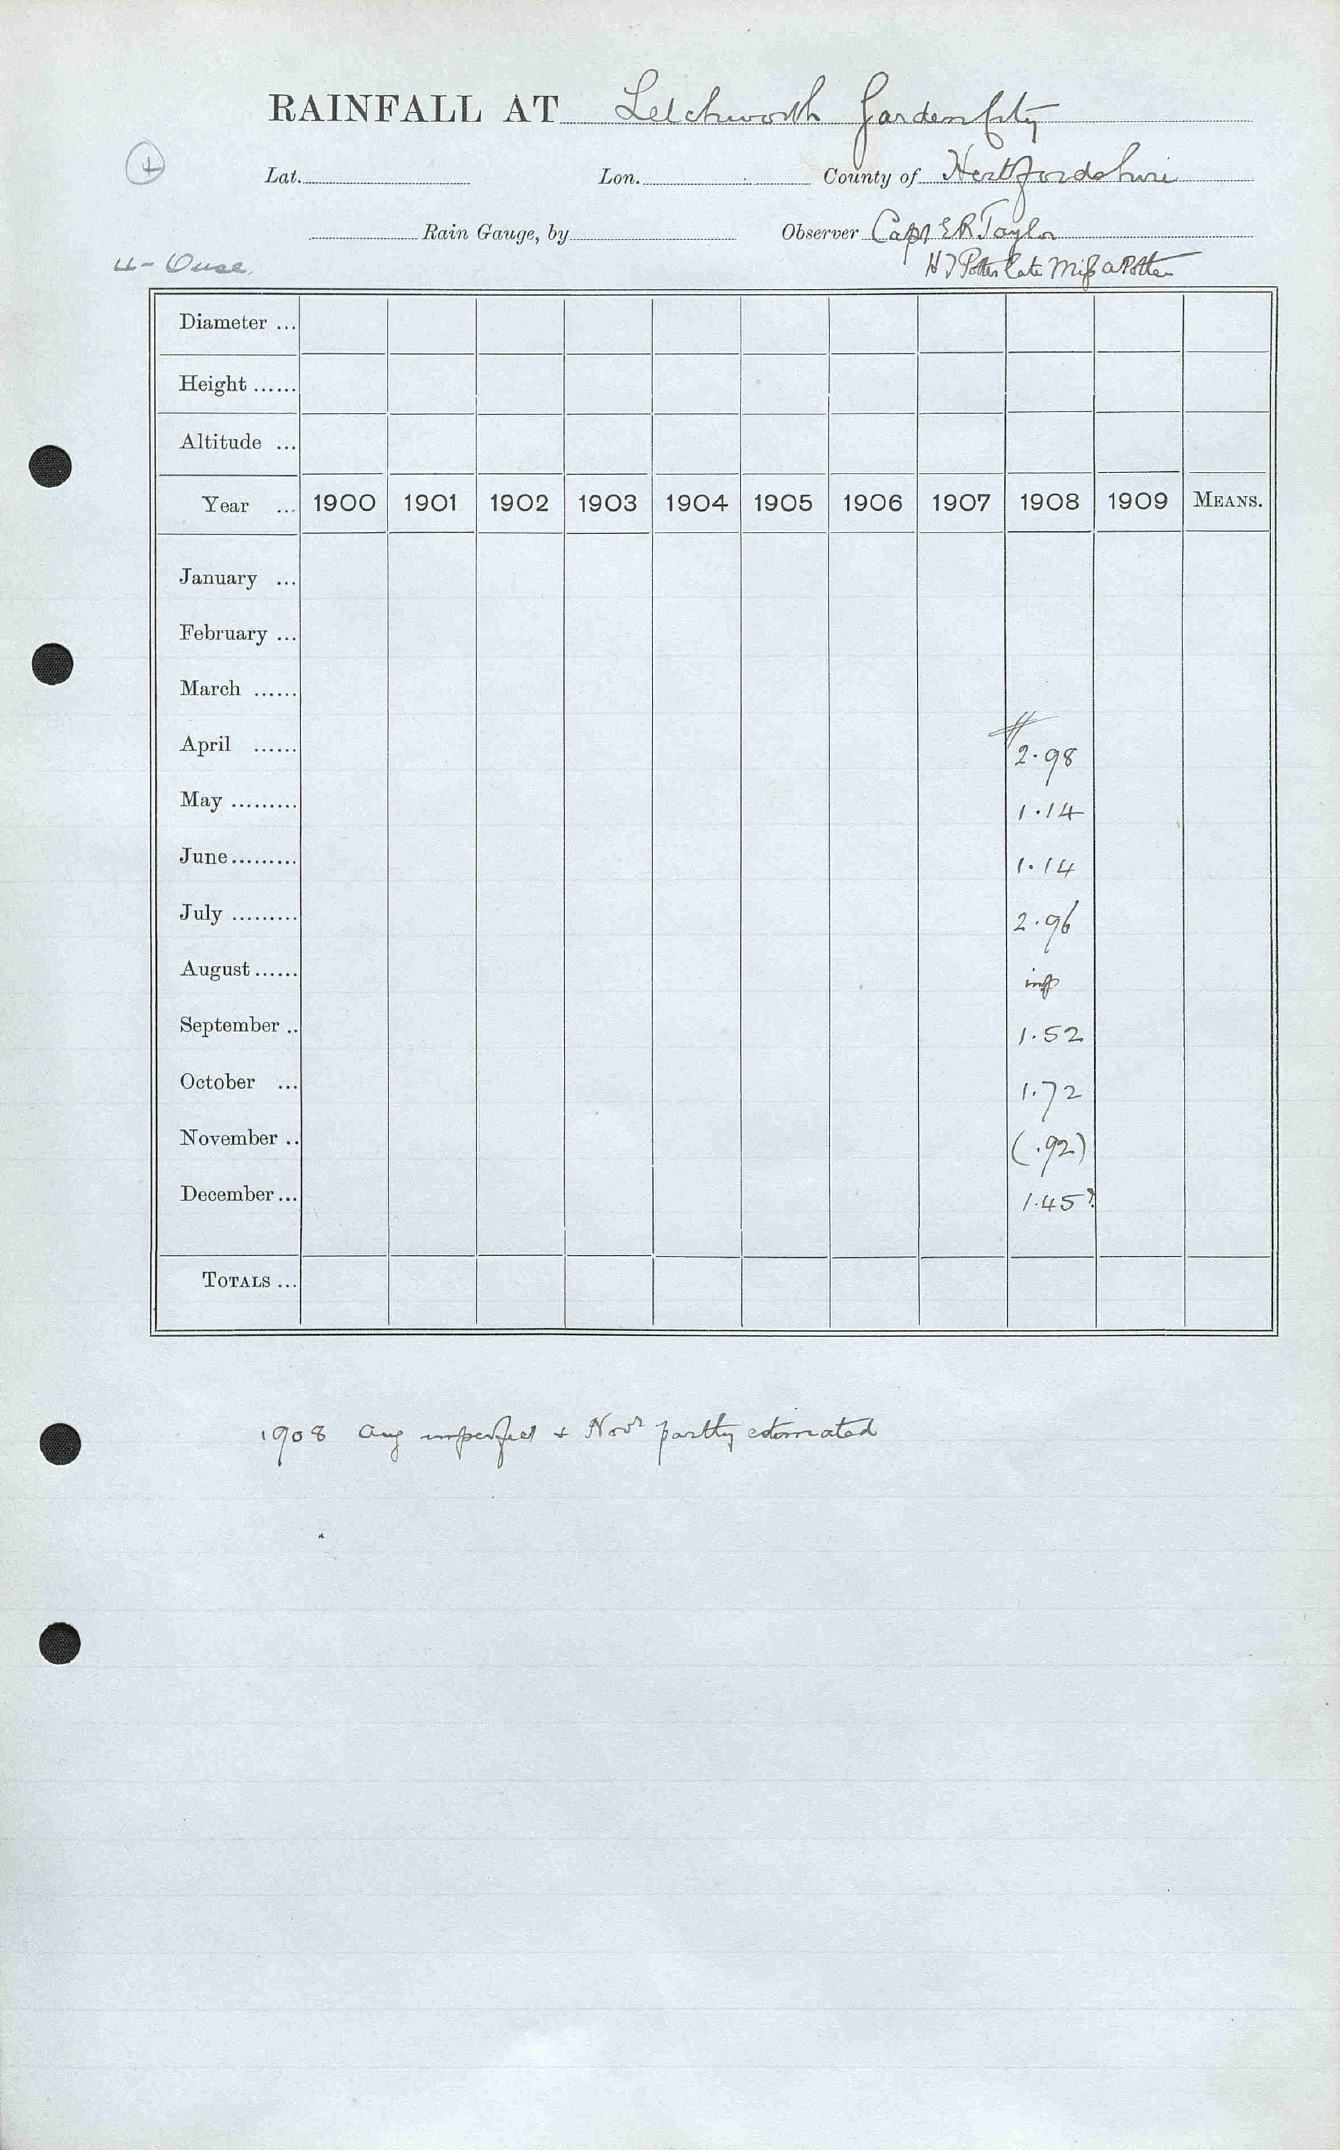 RAINFALL AT Letchworth Garden City
Lat. Lon. County of Hertfordshire
Rain Gauge, by Observer Capt E R Taylor
H J Potter late Miss A Potter
4- Ouse.
Diameter ...
Height ......
Altitude ...
Year ... 1900 1901 1902 1903 1904 1905 1906 1907 1908 1909 MEANS.
January ...
February ...
March ......
April ...... 2.98
May ......... 1.14
June ......... 1.14
July ......... 2.96
August ...... imp
September .. 1.52
October ... 1.72
November .. (.92)
December ... 1.45?
TOTALS ...
1908 Aug imperfect + Novr partly estimated